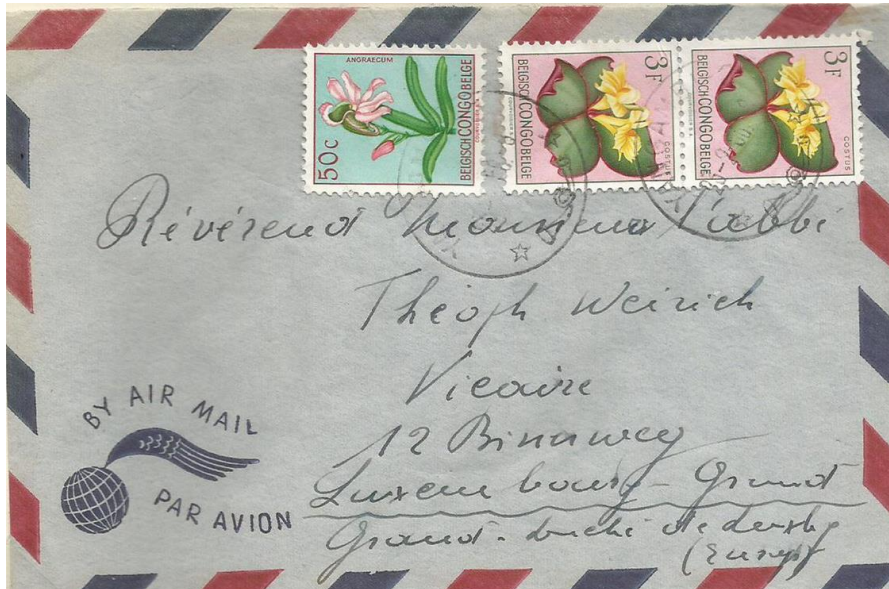 ANGRAECUM
50c
BELGISCH CONGO BELGE
3F
BELGISCH CONGO BELGE
COSTUS
3F
BELGISCH CONGO BELGE
COSTUS
Révérend Monsieur l'abbé
Théoph Weirich
Vicaire
12 Binnweg
Luxembourg - Grund
Grand-duché de Luxbg
(Europe)
BY AIR MAIL
PAR AVION